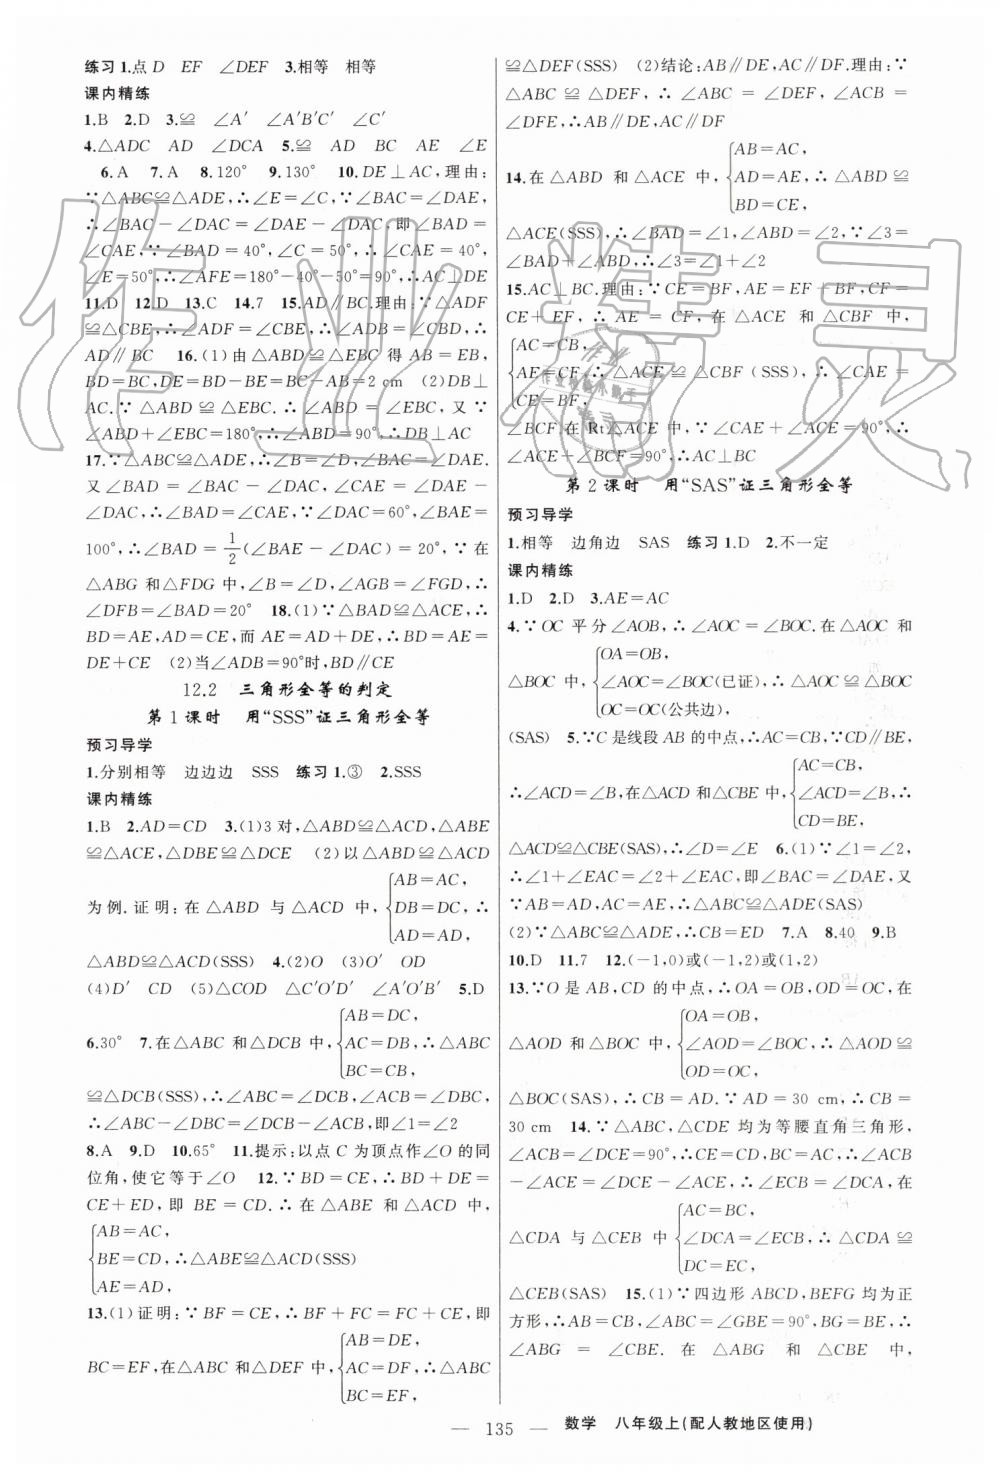 练习 1.点D EF ∠DEF 3.相等 相等
课内精练
1.B 2.D 3.≌ ∠A′ ∠A′B′C′ ∠C′
4.△ADC AD ∠DCA 5.≌ AD BC AE ∠E
6.A 7.A 8.120° 9.130° 10.DE⊥AC,理由:
∵△ABC≌△ADE,∴∠E=∠C,∵∠BAC=∠DAE,
∴∠BAC-∠DAC=∠DAE-∠DAC,即∠BAD=
∠CAE,∵∠BAD=40°,∠C=50°,∴∠CAE=40°,
∠E=50°,∴∠AFE=180°-40°-50°=90°,∴AC⊥DE
11.D 12.D 13.C 14.7 15.AD∥BC.理由:∵△ADF
≌△CBE,∴∠ADF=∠CBE,∴∠ADB=∠CBD,∴
AD∥BC 16.(1)由△ABD≌△EBC得AB=EB,
BD=BC,DE=BD-BE=BC-AB=2 cm (2)DB⊥
AC.∵△ABD≌△EBC.∴∠ABD=∠EBC,又∵
∠ABD+∠EBC=180°,∴∠ABD=90°,∴DB⊥AC
17.∵△ABC≌△ADE,∴∠B=∠D,∠BAC=∠DAE.
又∠BAD=∠BAC-∠DAC,∠CAE=∠DAE-
∠DAC,∴∠BAD=∠CAE.∵∠DAC=60°,∠BAE=
100°,∴∠BAD=1/2(∠BAE-∠DAC)=20°,∵在
△ABG和△FDG中,∠B=∠D,∠AGB=∠FGD,∴
∠DFB=∠BAD=20° 18.(1)∵△BAD≌△ACE,∴
BD=AE,AD=CE,而AE=AD+DE,∴BD=AE=
DE+CE (2)当∠ADB=90°时,BD∥CE
12.2 三角形全等的判定
第1课时 用“SSS”证三角形全等
预习导学
1.分别相等 边边边 SSS 练习 1.③ 2.SSS
课内精练
1.B 2.AD=CD 3.(1)3对,△ABD≌△ACD,△ABE
≌△ACE,△DBE≌△DCE (2)以△ABD≌△ACD
AB=AC,
为例.证明:在△ABD与△ACD中,{DB=DC,∴
AD=AD,
△ABD≌△ACD(SSS) 4.(2)O (3)O′ OD
(4)D′ CD (5)△COD △C′O′D′ ∠A′O′B′ 5.D
AB=DC,
6.30° 7.在△ABC和△DCB中,{AC=DB,∴△ABC
BC=CB,
≌△DCB(SSS),∴∠ABC=∠DCB,∠ACB=∠DBC,
∴∠ABC-∠DBC=∠DCB-∠ACB,即∠1=∠2
8.A 9.D 10.65° 11.提示:以点C为顶点作∠O的同
位角,使它等于∠O 12.∵BD=CE,∴BD+DE=
CE+ED,即BE=CD.∴在△ABE和△ACD中,
AB=AC,
{BE=CD,∴△ABE≌△ACD(SSS)
AE=AD,
13.(1)证明:∵BF=CE,∴BF+FC=FC+CE,即
AB=DE,
BC=EF,在△ABC和△DEF中,{AC=DF,∴△ABC
BC=EF,
≌△DEF(SSS) (2)结论:AB∥DE,AC∥DF.理由:∵
△ABC≌△DEF,∴∠ABC=∠DEF,∠ACB=
∠DFE,∴AB∥DE,AC∥DF
AB=AC,
14.在△ABD和△ACE中,{AD=AE,∴△ABD≌
BD=CE,
△ACE(SSS),∴∠BAD=∠1,∠ABD=∠2,∵∠3=
∠BAD+∠ABD,∴∠3=∠1+∠2
15.AC⊥BC.理由:∵CE=BF,AE=EF+BF,CF=
CE+EF,∴AE=CF,在△ACE和△CBF中,
AC=CB,
{AE=CF,∴△ACE≌△CBF(SSS),∴∠CAE=
CE=BF,
∠BCF.在Rt△ACE中,∵∠CAE+∠ACE=90°,∴
∠ACE+∠BCF=90°,∴AC⊥BC
第2课时 用“SAS”证三角形全等
预习导学
1.相等 边角边 SAS 练习 1.D 2.不一定
课内精练
1.D 2.D 3.AE=AC
4.∵OC平分∠AOB,∴∠AOC=∠BOC.在△AOC和
OA=OB,
△BOC中,{∠AOC=∠BOC(已证),∴△AOC≌△BOC
OC=OC(公共边),
(SAS) 5.∵C是线段AB的中点,∴AC=CB,∵CD∥BE,
AC=CB,
∴∠ACD=∠B,在△ACD和△CBE中,{∠ACD=∠B,∴
CD=BE,
△ACD≌△CBE(SAS),∴∠D=∠E 6.(1)∵∠1=∠2,
∴∠1+∠EAC=∠2+∠EAC,即∠BAC=∠DAE,又
∵AB=AD,AC=AE,∴△ABC≌△ADE(SAS)
(2)∵△ABC≌△ADE,∴CB=ED 7.A 8.40 9.B
10.D 11.7 12.(-1,0)或(-1,2)或(1,2)
13.∵O是AB,CD的中点,∴OA=OB,OD=OC,在
OA=OB,
△AOD和△BOC中,{∠AOD=∠BOC,∴△AOD≌
OD=OC,
△BOC(SAS),∴CB=AD.∵AD=30 cm,∴CB=
30 cm 14.∵△ABC,△CDE均为等腰直角三角形,
∠ACB=∠DCE=90°,∴CE=CD,BC=AC,∴∠ACB
-∠ACE=∠DCE-∠ACE,∴∠ECB=∠DCA,在
AC=BC,
△CDA与△CEB中{∠DCA=∠ECB,∴△CDA≌
DC=EC,
△CEB(SAS) 15.(1)∵四边形ABCD,BEFG均为正
方形,∴AB=CB,∠ABC=∠GBE=90°,BG=BE,∴
∠ABG=∠CBE.在△ABG和△CBE中,
— 135 — 数学 八年级上(配人教地区使用)
作业精灵